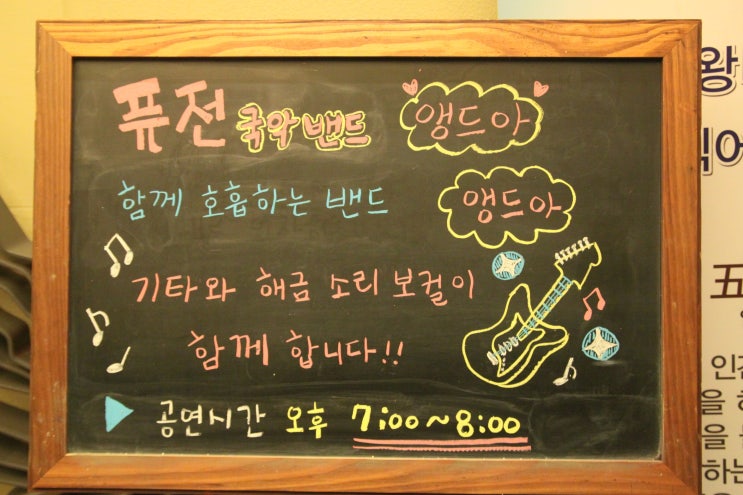 퓨전 국악 밴드 앵드아
함께 호흡하는 밴드 앵드아
기타와 해금 소리 보컬이
함께 합니다!!
▶ 공연시간 오후 7:00~8:00
왕
五
인간
을 하
을
하는